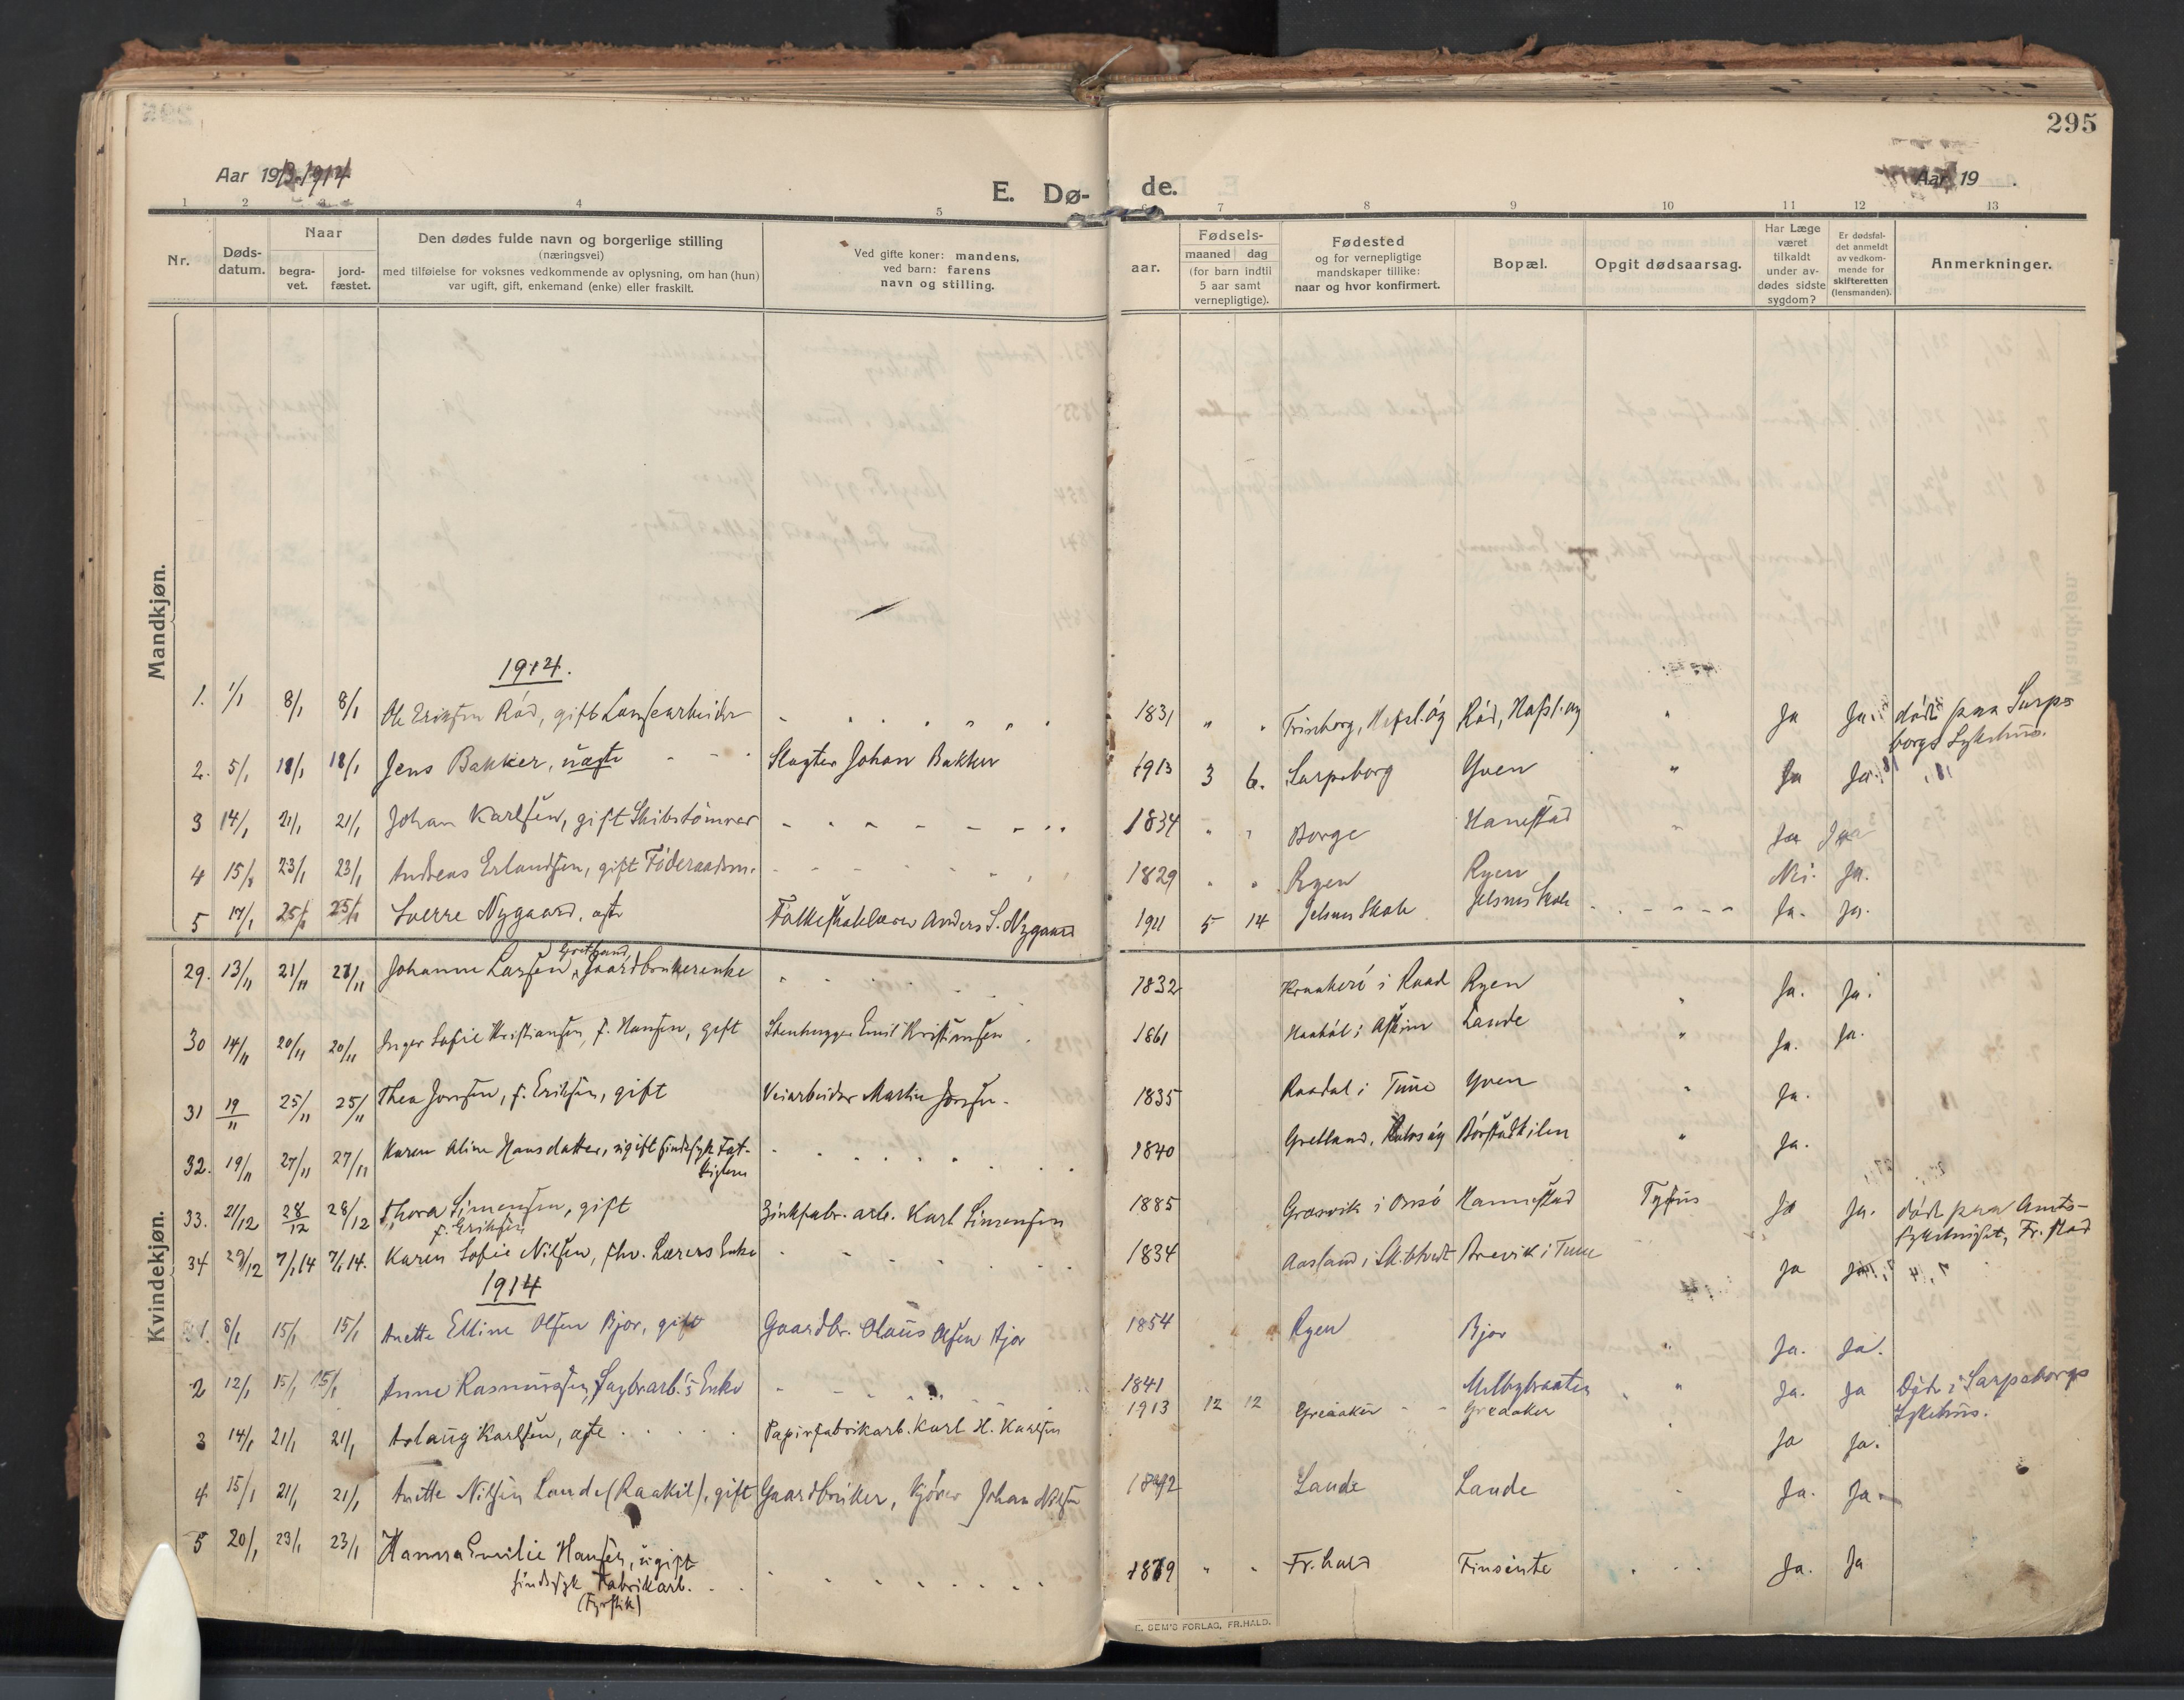 295
Aar 1913-1914
E. Dø-
de.
Aar 19 .
1 2 3 4 5 6 7 8 9 10 11 12 13
Nr.
Døds-
datum.
Naar
begra-
vet.
jord-
fæstet.
Den dødes fulde navn og borgerlige stilling
(næringsvei)
med tilføielse for voksnes vedkommende av oplysning, om han (hun)
var ugift, gift, enkemand (enke) eller fraskilt.
Ved gifte koner: mandens,
ved barn: farens
navn og stilling.
aar.
Fødsels-
maaned dag
(for barn indtil
5 aar samt
vernepligtige).
Fødested
og for vernepligtige
mandskaper tillike:
naar og hvor konfirmert.
Bopæl.
Opgit dødsaarsag.
Har Læge
været
tilkaldt
under av-
dødes sidste
sygdom?
Er dødsfal-
det anmeldt
av vedkom-
mende for
skifteretten
(lensmanden).
Anmerkninger.
Mandkjøn.
1914.
1. 1/1 8/1 8/1 Ole Eriksen Rød, gift Landsearbeider 1831 " " Trinborg, Hafsl. og Rød, Hafsl. og " Ja Ja. død paa Sarps
borgs Sykehus.
2. 5/1 18/1 18/1 Jens Bakker, uægte Slagter Johan Bakker 1913 3 6. Sarpsborg Yven " Ja Ja.
3 14/1 21/1 21/1 Johan Karlsen, gift Skibstømrer 1834 " " Borge Hanestad " Ja Ja
4 15/1 23/1 23/1 Andreas Erlandsen, gift Føderaadsm. 1829 " " Ryen Ryen Nei. Ja.
5 17/1 25/1 25/1 Sverre Nygaard, ægte Folkeskolelærer Anders S. Nygaard 1911 5 14 Jelsnes Skole Jelsnes Skole Ja. Ja.
Kvindekjøn.
Gretland,
29. 13/11 21/11 21/11 Johanne Larsen, Gaardbrukerenke 1832 i Raad Ryen " Ja. Ja.
30 14/11 20/11 20/11 Inger Sofie Kristiansen, f. Hansen, gift Stenhugger Emil Kristiansen 1861 i Askim Lande " Ja. Ja.
31 19/11 25/11 25/11 Thea Jonsen, f. Eriksen, gift Veiarbeider Martin Jonsen 1835 Raadal i Tune Yven " Ja.
32. 19/11 27/11 27/11 Karen Aline Hansdatter, ugift sindssyk Fat-
tiglem 1840 Gretland, Børstadkilen " Ja.
33. 21/12 28/12 28/12 Thora Simensen, gift
f. Eriksen Zinkfabr. arb. Karl Simensen 1885 Græsvik i Onsø Hannestad Tyfus Ja Ja. død paa Amts-
sykehuset, Fr. stad
34 29/12 7/1 14 7/1 14. Karen Sofie Nilsen, fhv. Lærers Enke 1834 Aasland i Skibtvedt Arevik i Tune Ja Ja
1914
1. 8/1 15/1 15/1 Anette Elline Olsen Bjor, gift Gaardbr. Olaus Olsen Bjor 1854 Ryen Bjor " Ja. Ja.
2 12/1 15/1 15/1 Anne Rasmussen, Sagbrarb.'s Enke 1841 Melbybraaten " " Ja. Ja Død i Sarpsborgs
Sykehus.
3 14/1 21/1 21/1 Aslaug Karlsen, ægte Papirfabrikarb. Karl H. Karlsen 1913 12 12 Greaaker Greaaker " Ja Ja.
4 15/1 21/1 21/1 Anette Nilsen Lande (Raakil), gift Gaardbruker, Kjører Johan Nilsen 1842 Lande Lande Ja. Ja.
5 20/1 23/1 23/1 Hanna Emilie Hansen, ugift
sindssyk Fabrikarb.
(Fyrstik) 1869 " " Fr.hald Tinsente Ja. Ja
E. SEM'S FORLAG, FR.HALD.